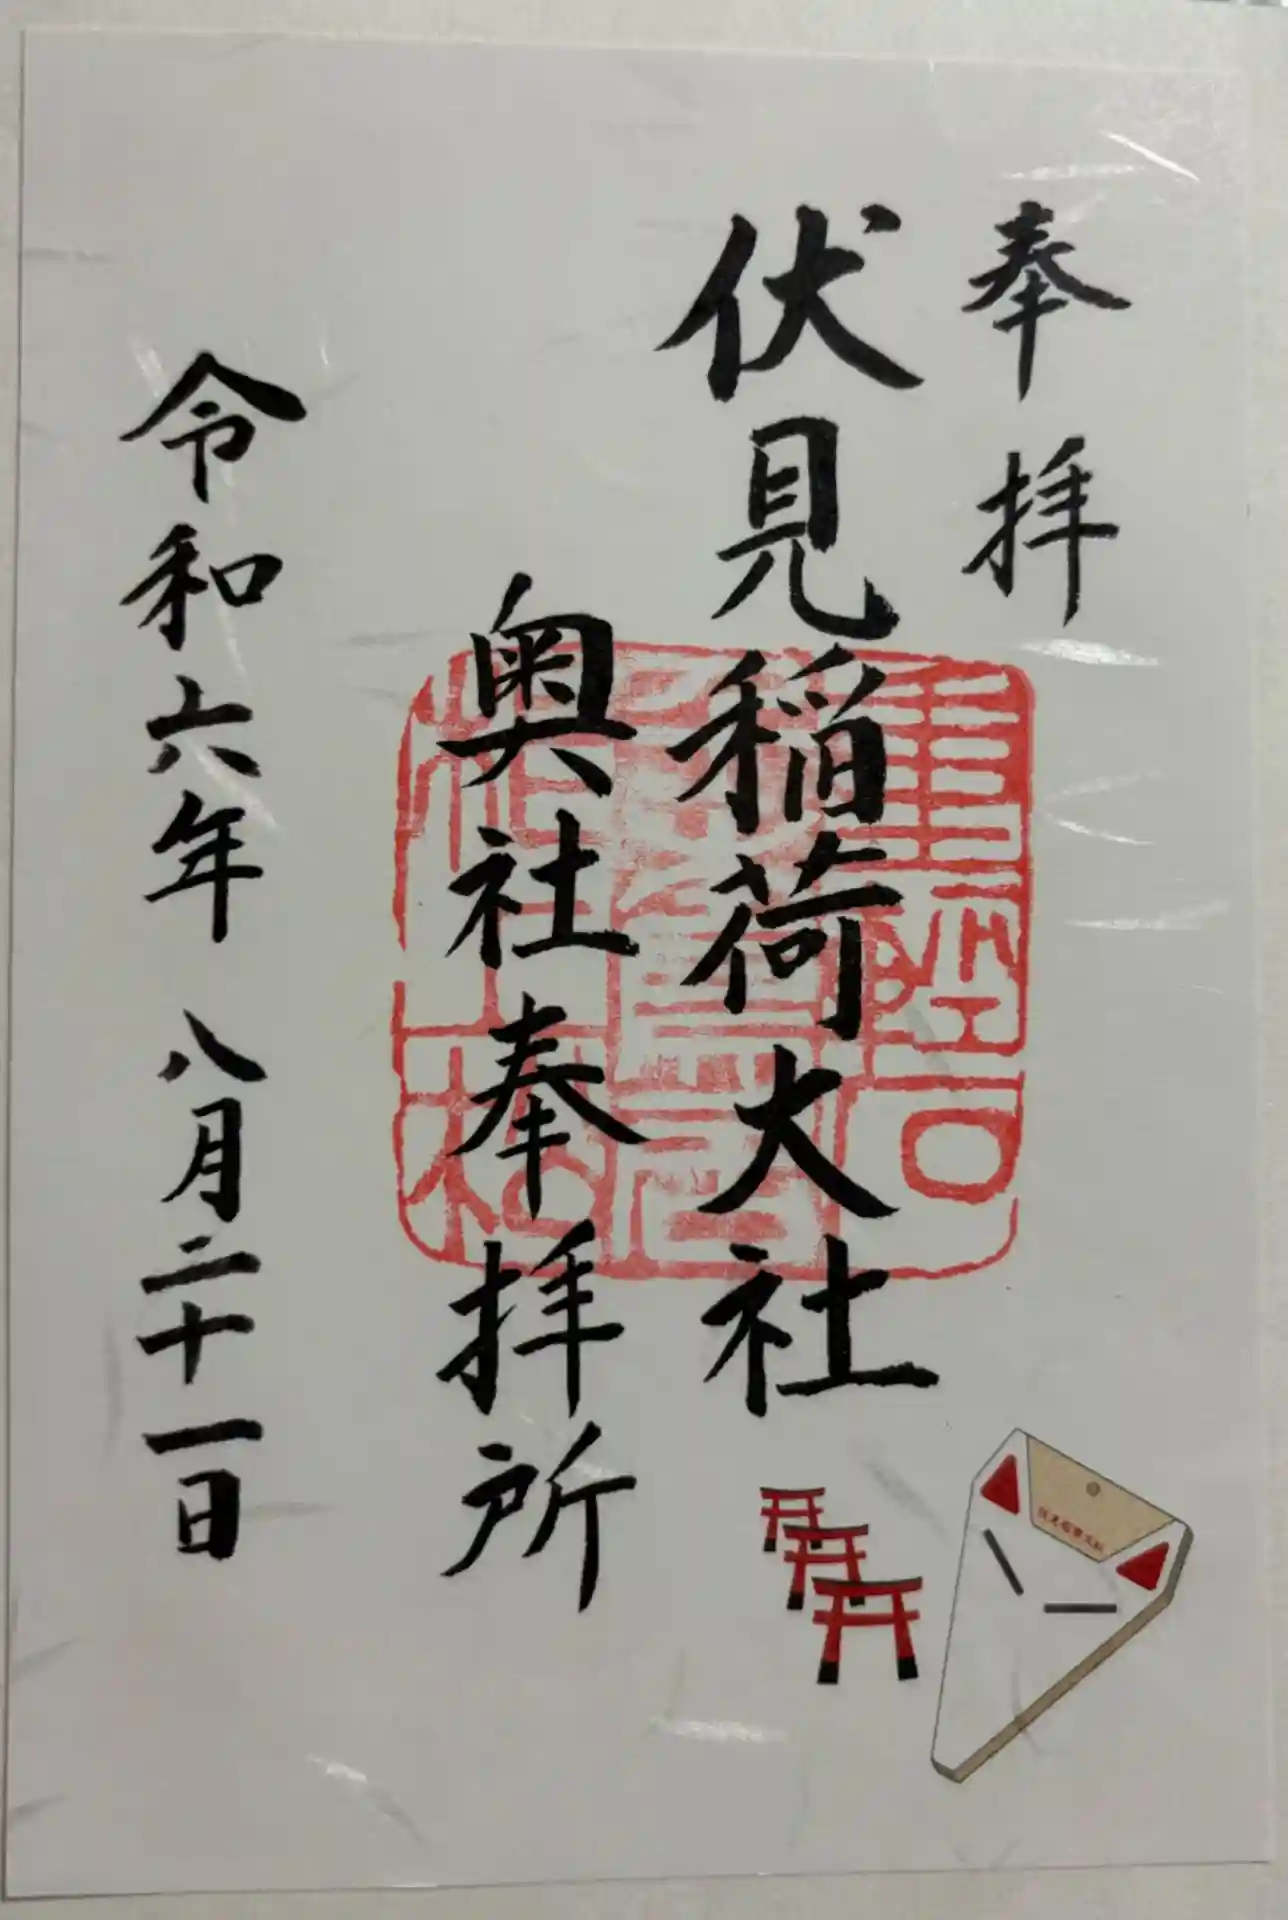 奉拝
伏見稲荷大社
奥社奉拝所
令和六年 八月二十一日
伏見稲荷大社